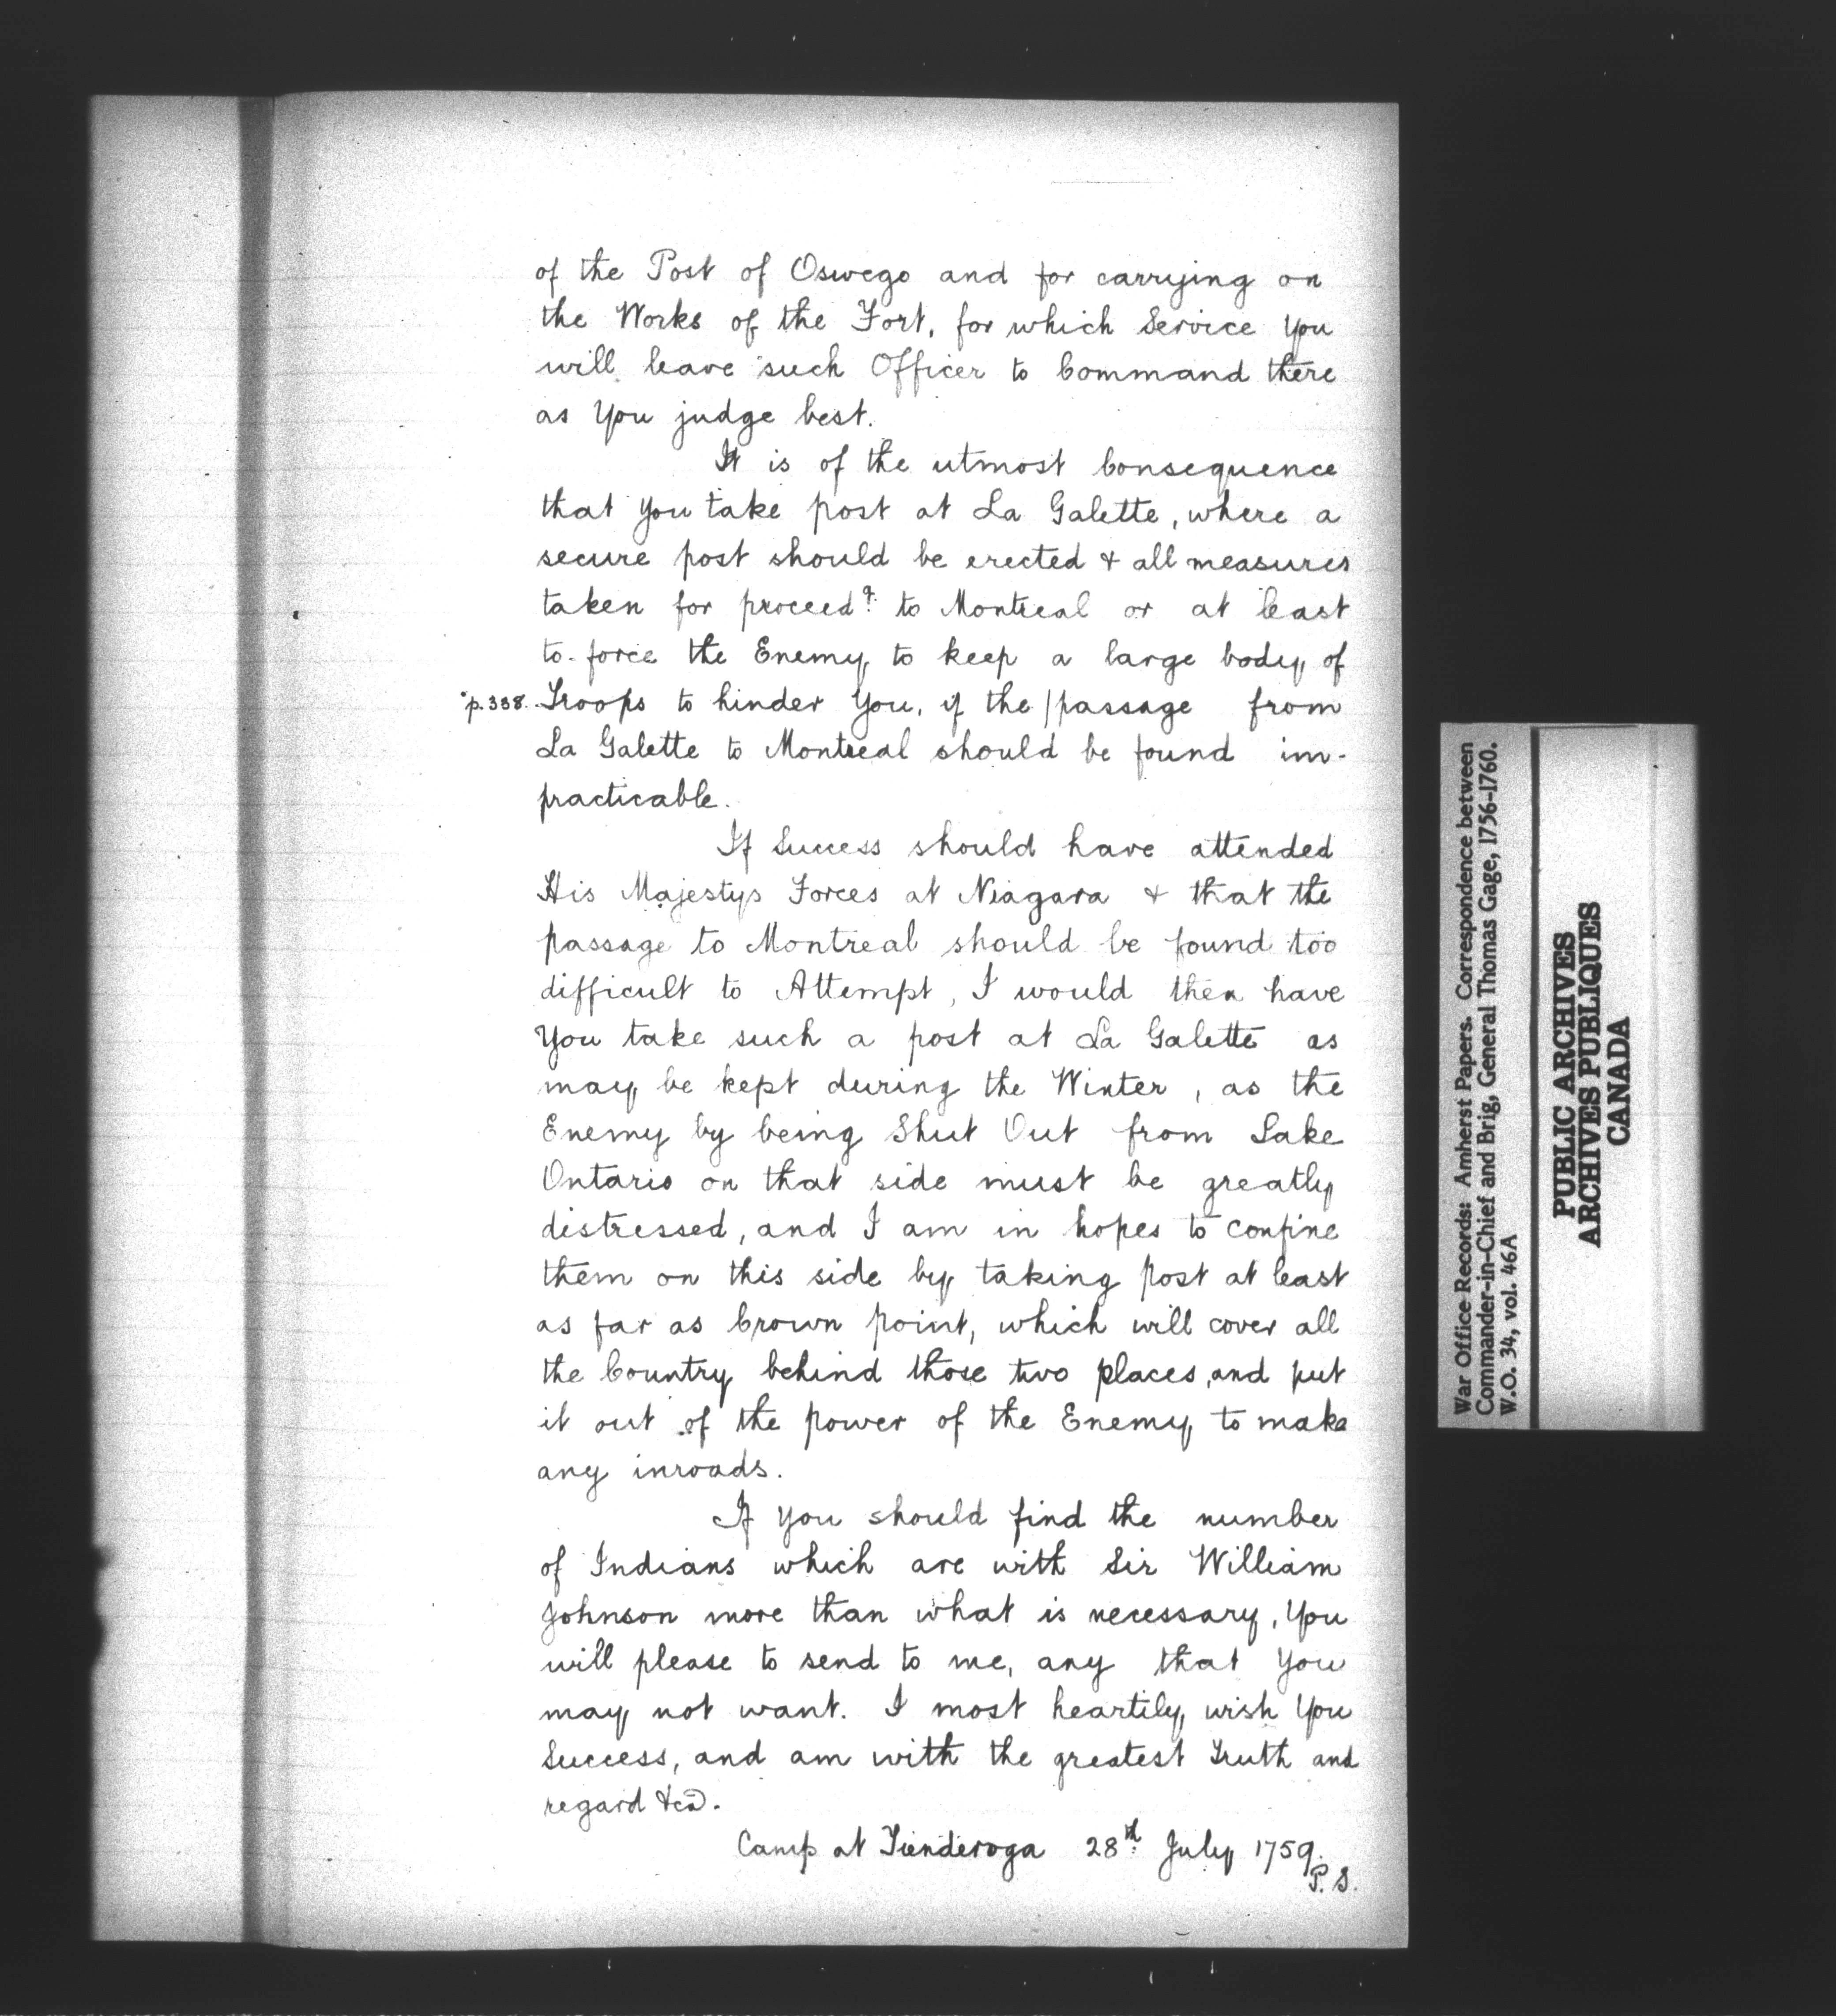 of the Post of Oswego and for carrying on
the Works of the Fort, for which Service You
will leave such Officer to Command there
as You judge best.
It is of the utmost Consequence
that You take post at La Galette, where a
secure post should be erected & all measures
taken for proceedg. to Montreal or at least
to force the Enemy to keep a large body of
p. 338. Troops to hinder You, if the /passage from
La Galette to Montreal should be found im-
practicable.
If Success should have attended
His Majestys Forces at Niagara & that the
passage to Montreal should be found too
difficult to Attempt, I would then have
You take such a post at La Galette as
may be kept during the Winter, as the
Enemy by being Shut Out from Lake
Ontario on that side must be greatly
distressed, and I am in hopes to confine
them on this side by taking post at least
as far as Crown point, which will cover all
the Country behind those two places, and put
it out of the power of the Enemy to make
any inroads.
If You should find the number
of Indians which are with Sir William
Johnson more than what is necessary, You
will please to send to me, any that You
may not want. I most heartily wish You
Success, and am with the greatest Truth and
regard &ca.
Camp at Tienderoga 28th July 1759.
P.S.
War Office Records: Amherst Papers. Correspondence between
Commander-in-Chief and Brig, General Thomas Gage, 1756-1760.
W.O. 34, vol. 46A
PUBLIC ARCHIVES
ARCHIVES PUBLIQUES
CANADA